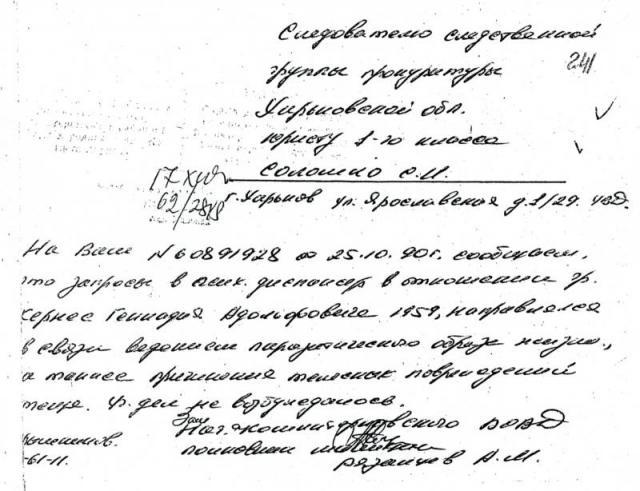 Следователю следственной
группы прокуратуры
241
Харьковской обл.
юристу 1-го класса
Солошко С.И.
17
62/28
г. Харьков ул. Ярославская д. 1/29.
На Ваш N 60891928 от 25.10.90г. сообщаем,
что запросы в псих. диспансер в отношении гр.
Кернес Геннадия Адольфовича 1959, направлялся
в связи ведением паразитического образа жизни.,
а также причинения телесных повреждений
теще. Уг. дел не возбуждалось.
Зам.
Нач. РОВД
полковник милиции
-61-11.
Рязанцев А.М.